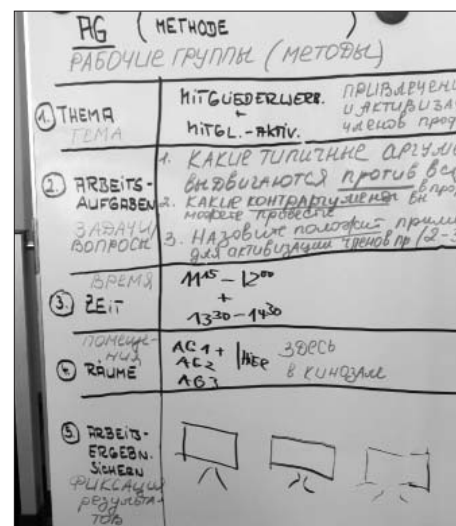 AG ( METHODE )
РАБОЧИЕ ГРУППЫ (МЕТОДЫ)
1. THEMA
ТЕМА
MITGLIEDERWERB.
+
MITGL.-AKTIV.
ПРИВЛЕЧЕНИ
И АКТИВИЗА
членов проф
2. ARBEITS-
AUFGABEN
ЗАДАЧИ/
ВОПРОСЫ
1. КАКИЕ ТИПИЧНЫЕ АРГУМЕ
ВЫДВИГАЮТСЯ против вс
2. КАКИЕ контраргумент вы
можете провести
3. Назовите полож прим
для активизации членов пр (2-3
ВРЕМЯ
3. ZEIT
11 15 – 12 00
+
13 30 – 14 30
ПОМЕЩЕ-
НИЯ
4. RÄUME
AG 1 +
AG 2
AG 3
HIER
ЗДЕСЬ
В КИНОЗАЛЕ
5. ARBEITS-
ERGEBN.
SICHERN
ФИКСАЦИЯ
результа-
тов